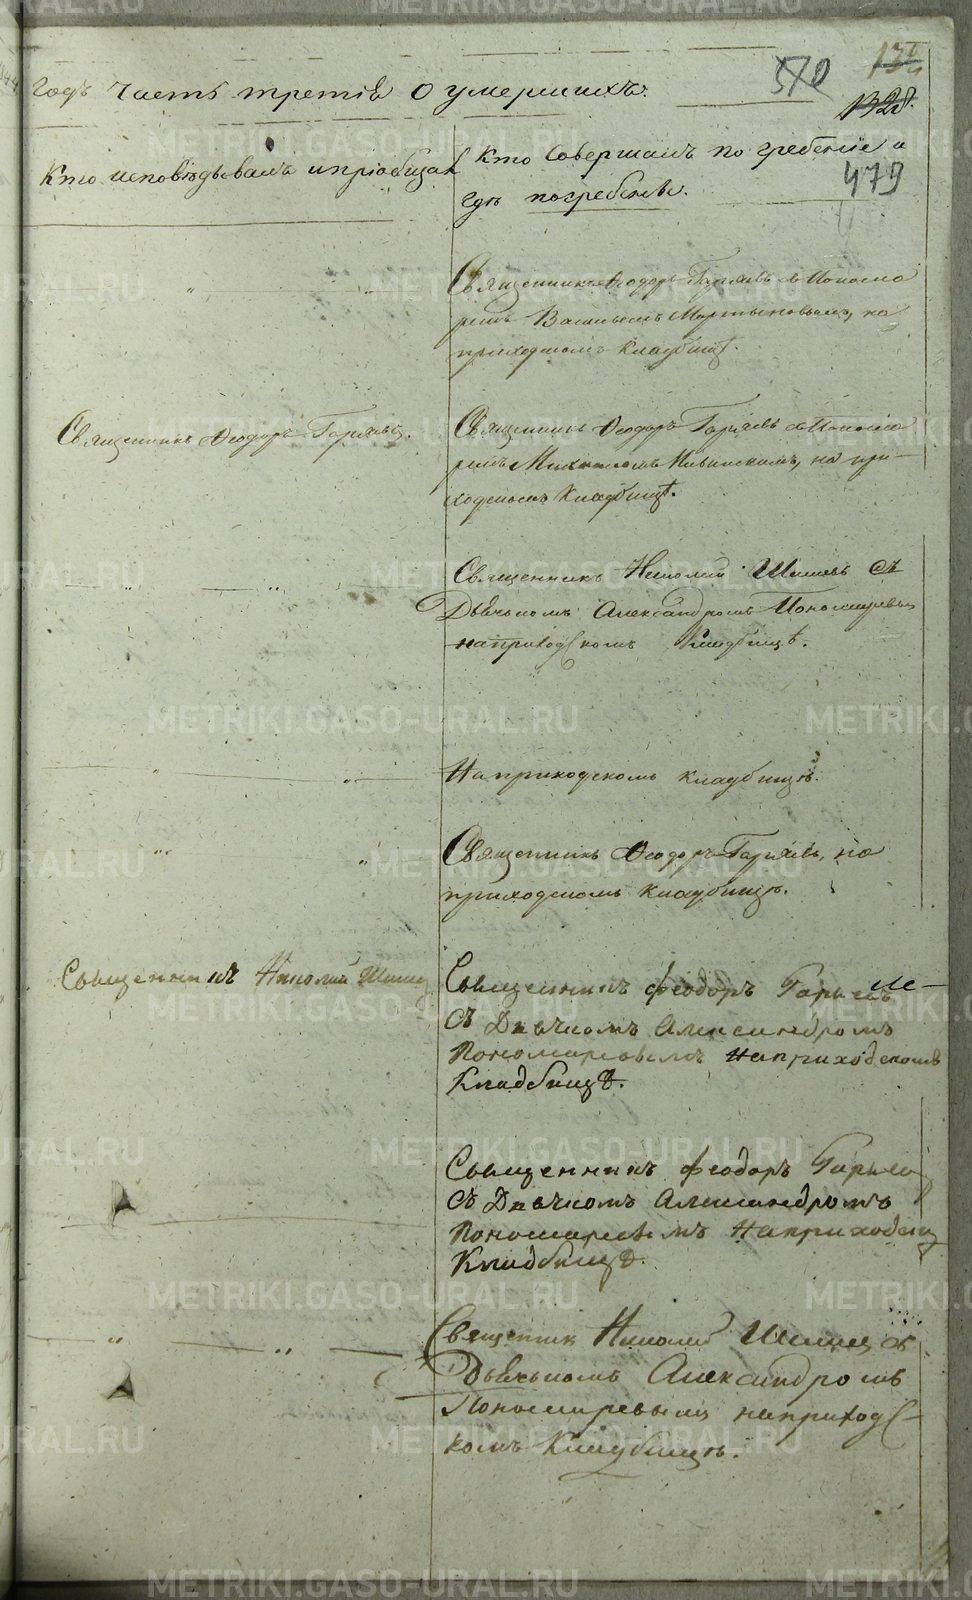 Годъ Часть третія О умершихъ.
570
132
1328.
479
Кто исповѣдывалъ и пріобщалъ
Кто совершалъ погребеніе и
гдѣ погребены.
Священникъ Ѳеодоръ Гаряевъ съ Поно­ма
ремъ Васильемъ Мартыновымъ, на
приходскомъ кладбищѣ.
Священникъ Ѳеодоръ Гаряевъ.
Священникъ Ѳеодоръ Гаряевъ съ Понома
ремъ Михаиломъ, на при-
ходскомъ кладбищѣ.
Священникъ Николай Шишевъ съ
Дьячькомъ Александромъ Пономаревым
на приходскомъ Кладбищѣ.
На приходскомъ кладбищѣ.
Священникъ Ѳеодоръ Гаряевъ, на
приходскомъ кладбищѣ.
Священникъ Николай
Священникъ Феодоръ Гаряевъ
Съ Дьячкомъ Александромъ
Пономаревымъ На приходскомъ
Кладбищѣ.
Священникъ Феодоръ Гаряев
Съ Дьячкомъ Александромъ
Пономаревымъ На приходском
Кладбищѣ.
Священник Николай съ
Дьячькомъ Александромъ
Пономаревым на приходс-
комъ Кладбищѣ.
METRIKI.GASO-URAL.RU